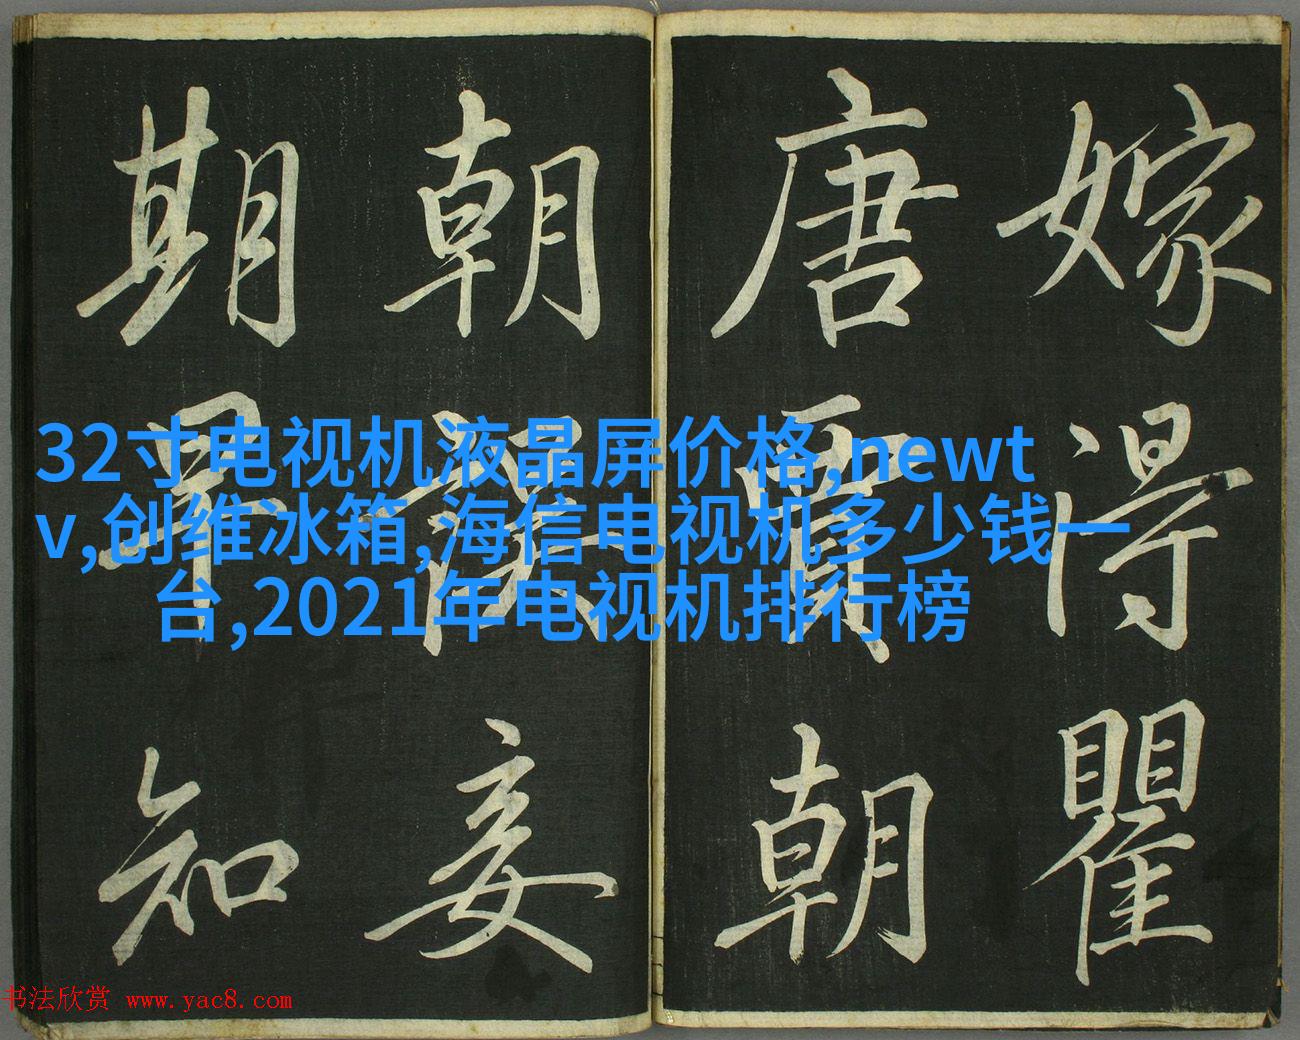 嫁得瞿
唐賈朝
朝誤妾
期早知
32寸电视机液晶屏价格,newt
v,创维冰箱,海信电视机多少钱一
台,2021年电视机排行榜
书法欣赏 www.yac8.com